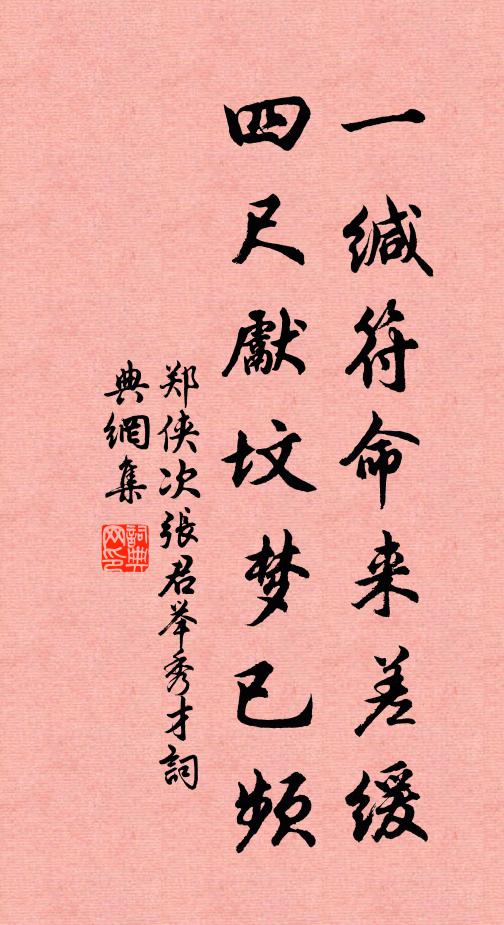 一缄符命来差缓
四尺獻坟梦已頻
郑侠次張君举秀才詞
典網集
詞典网印